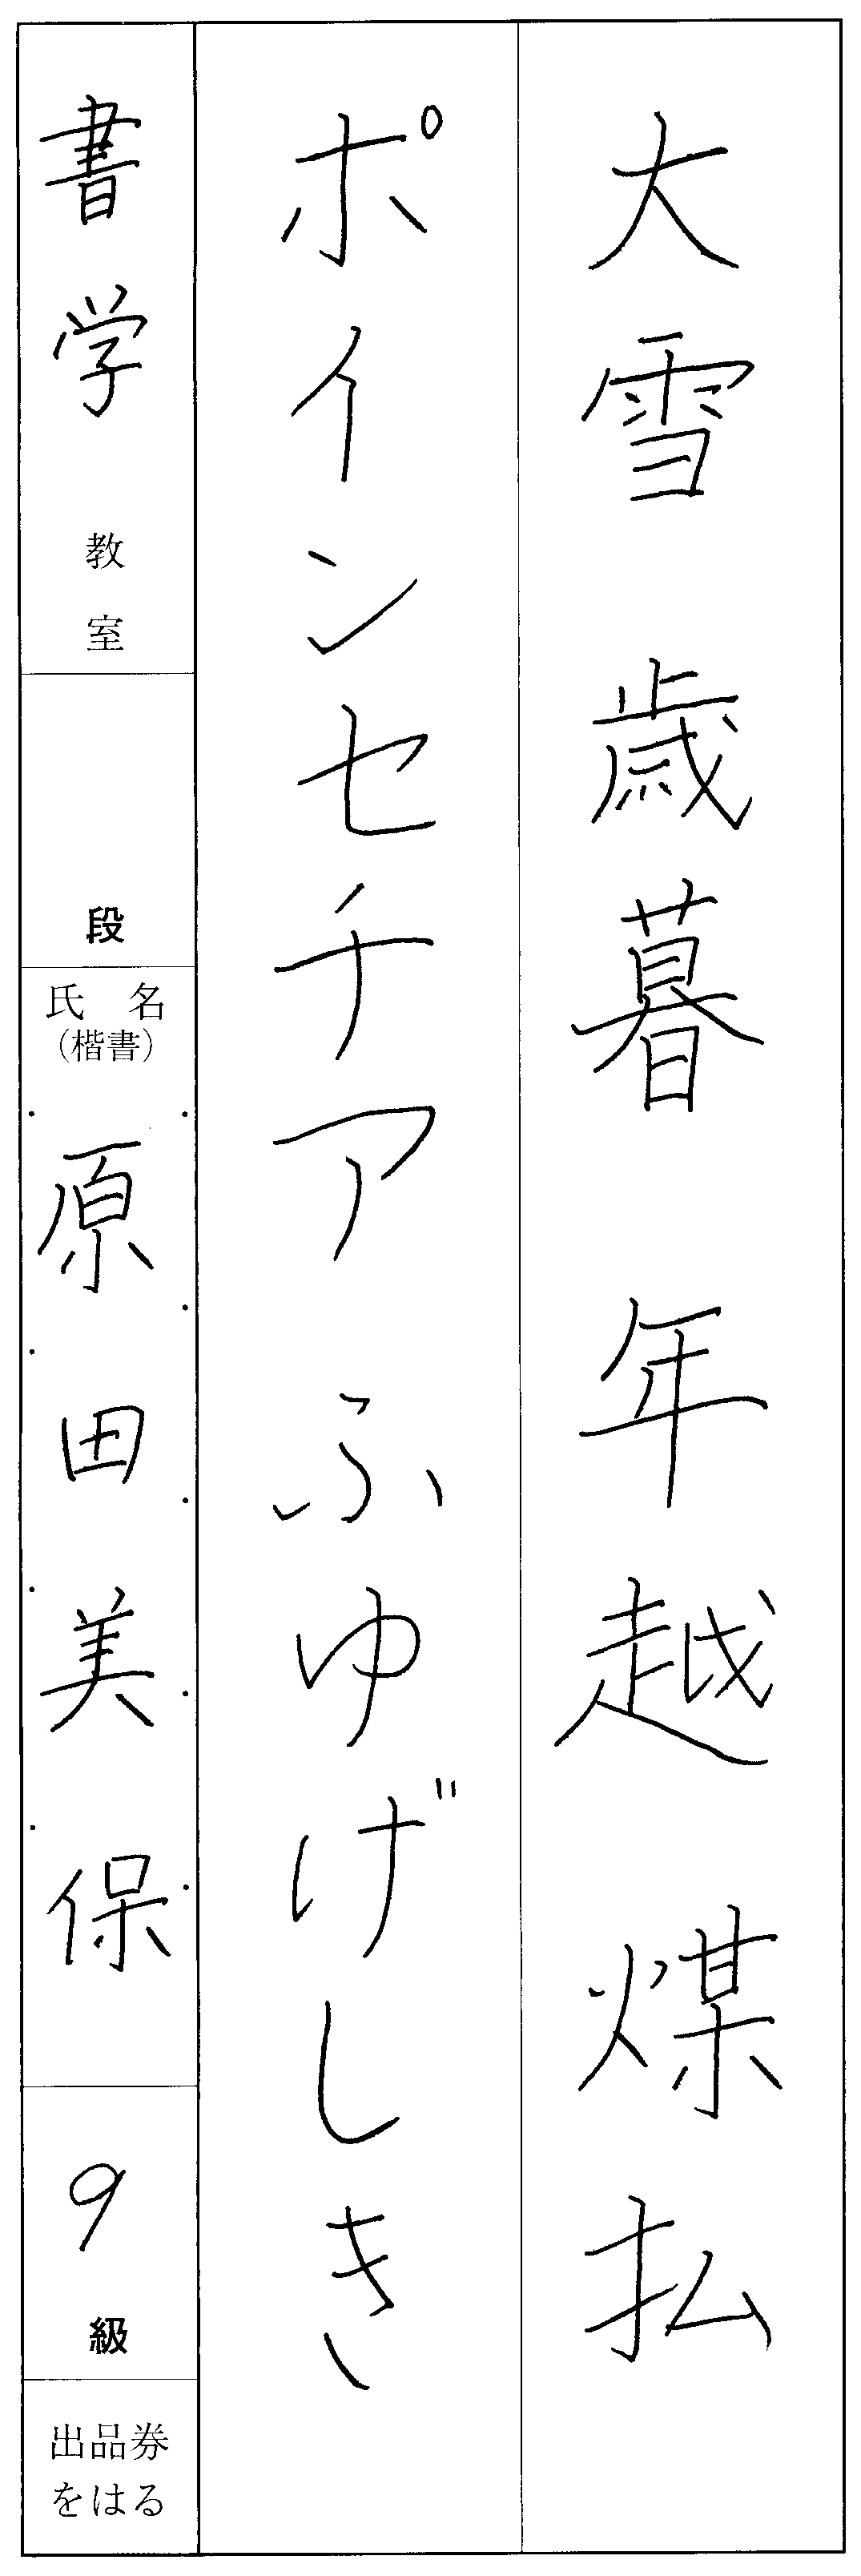 大雪 歳暮 年越 煤払
ポインセチア ふゆげしき
書学教室
段
氏名
(楷書)
原田美保
9級
出品券
をはる